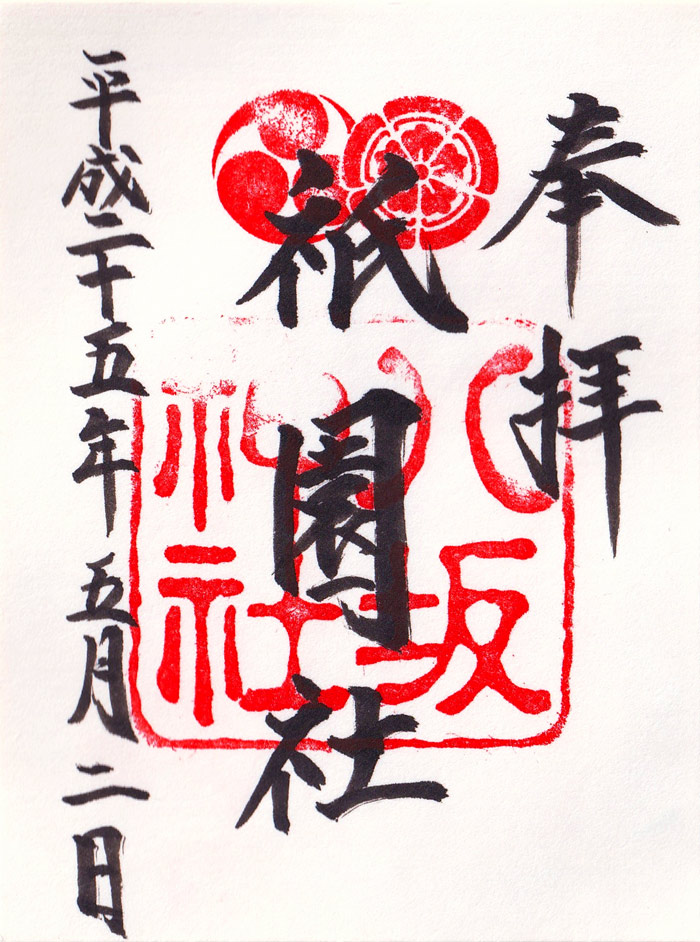 奉拝
祇園社
平成二十五年五月二日
八坂
神社